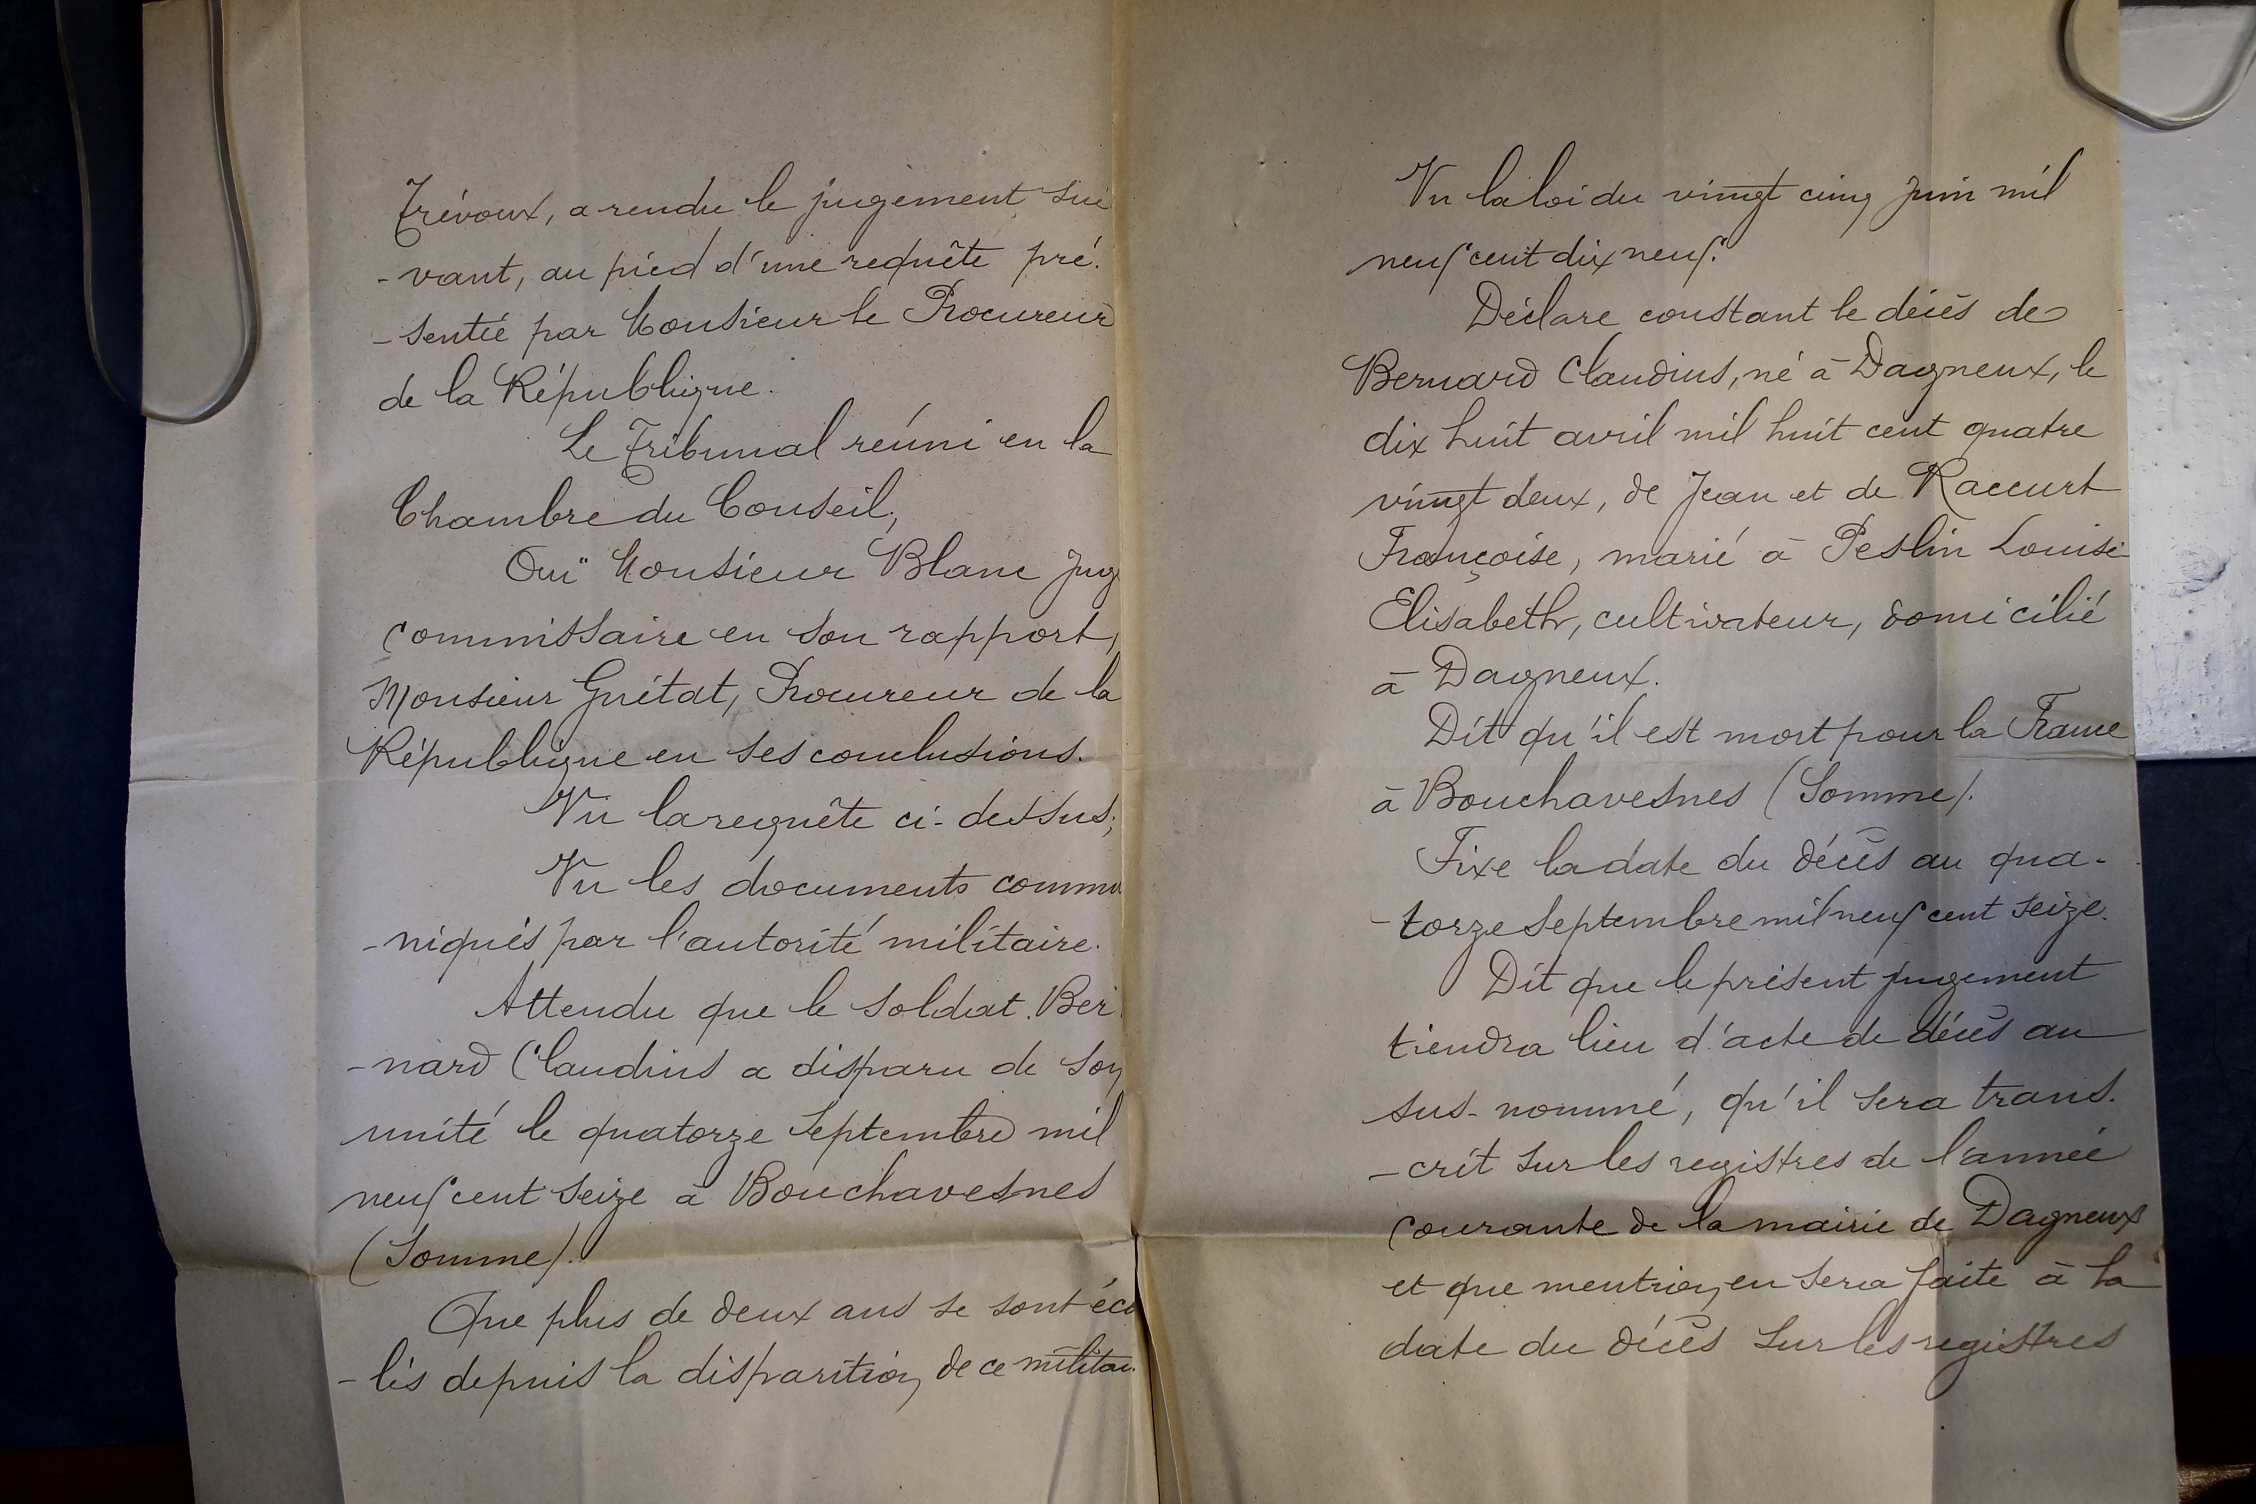 Trévoux, a rendu le jugement sui
-vant, au pied d'une requête pré-
-sentée par Monsieur le Procureur
de la République.
Le Tribunal réuni en la
Chambre du Conseil,
Ouï Monsieur Blanc Jug
commissaire en son rapport,
Monsieur Guétat, Procureur de la
République en ses conclusions.
Vu la requête ci-dessus;
Vu les documents commu
-niqués par l'autorité militaire.
Attendu que le soldat Ber
-nard Claudius a disparu de son
unité le quatorze septembre mil
neuf cent seize à Bouchavesnes
(Somme).
Que plus de deux ans se sont écou
-lés depuis la disparition de ce militai
Vu la loi du vingt cinq juin mil
neuf cent dix neuf.
Déclare constant le décès de
Bernard Claudius, né à Dagneux, le
dix huit avril mil huit cent quatre
vingt deux, de Jean et de Raccurt
Françoise, marié à Peslin Louise
Elisabeth, cultivateur, domicilié
à Dagneux.
Dit qu'il est mort pour la France
à Bouchavesnes (Somme).
Fixe la date du décès au qua-
-torze septembre mil neuf cent seize.
Dit que le présent jugement
tiendra lieu d'acte de décès au
sus-nommé, qu'il sera trans-
-crit sur les registres de l'année
courante de la mairie de Dagneux
et que mention en sera faite à la
date du décès sur les registres